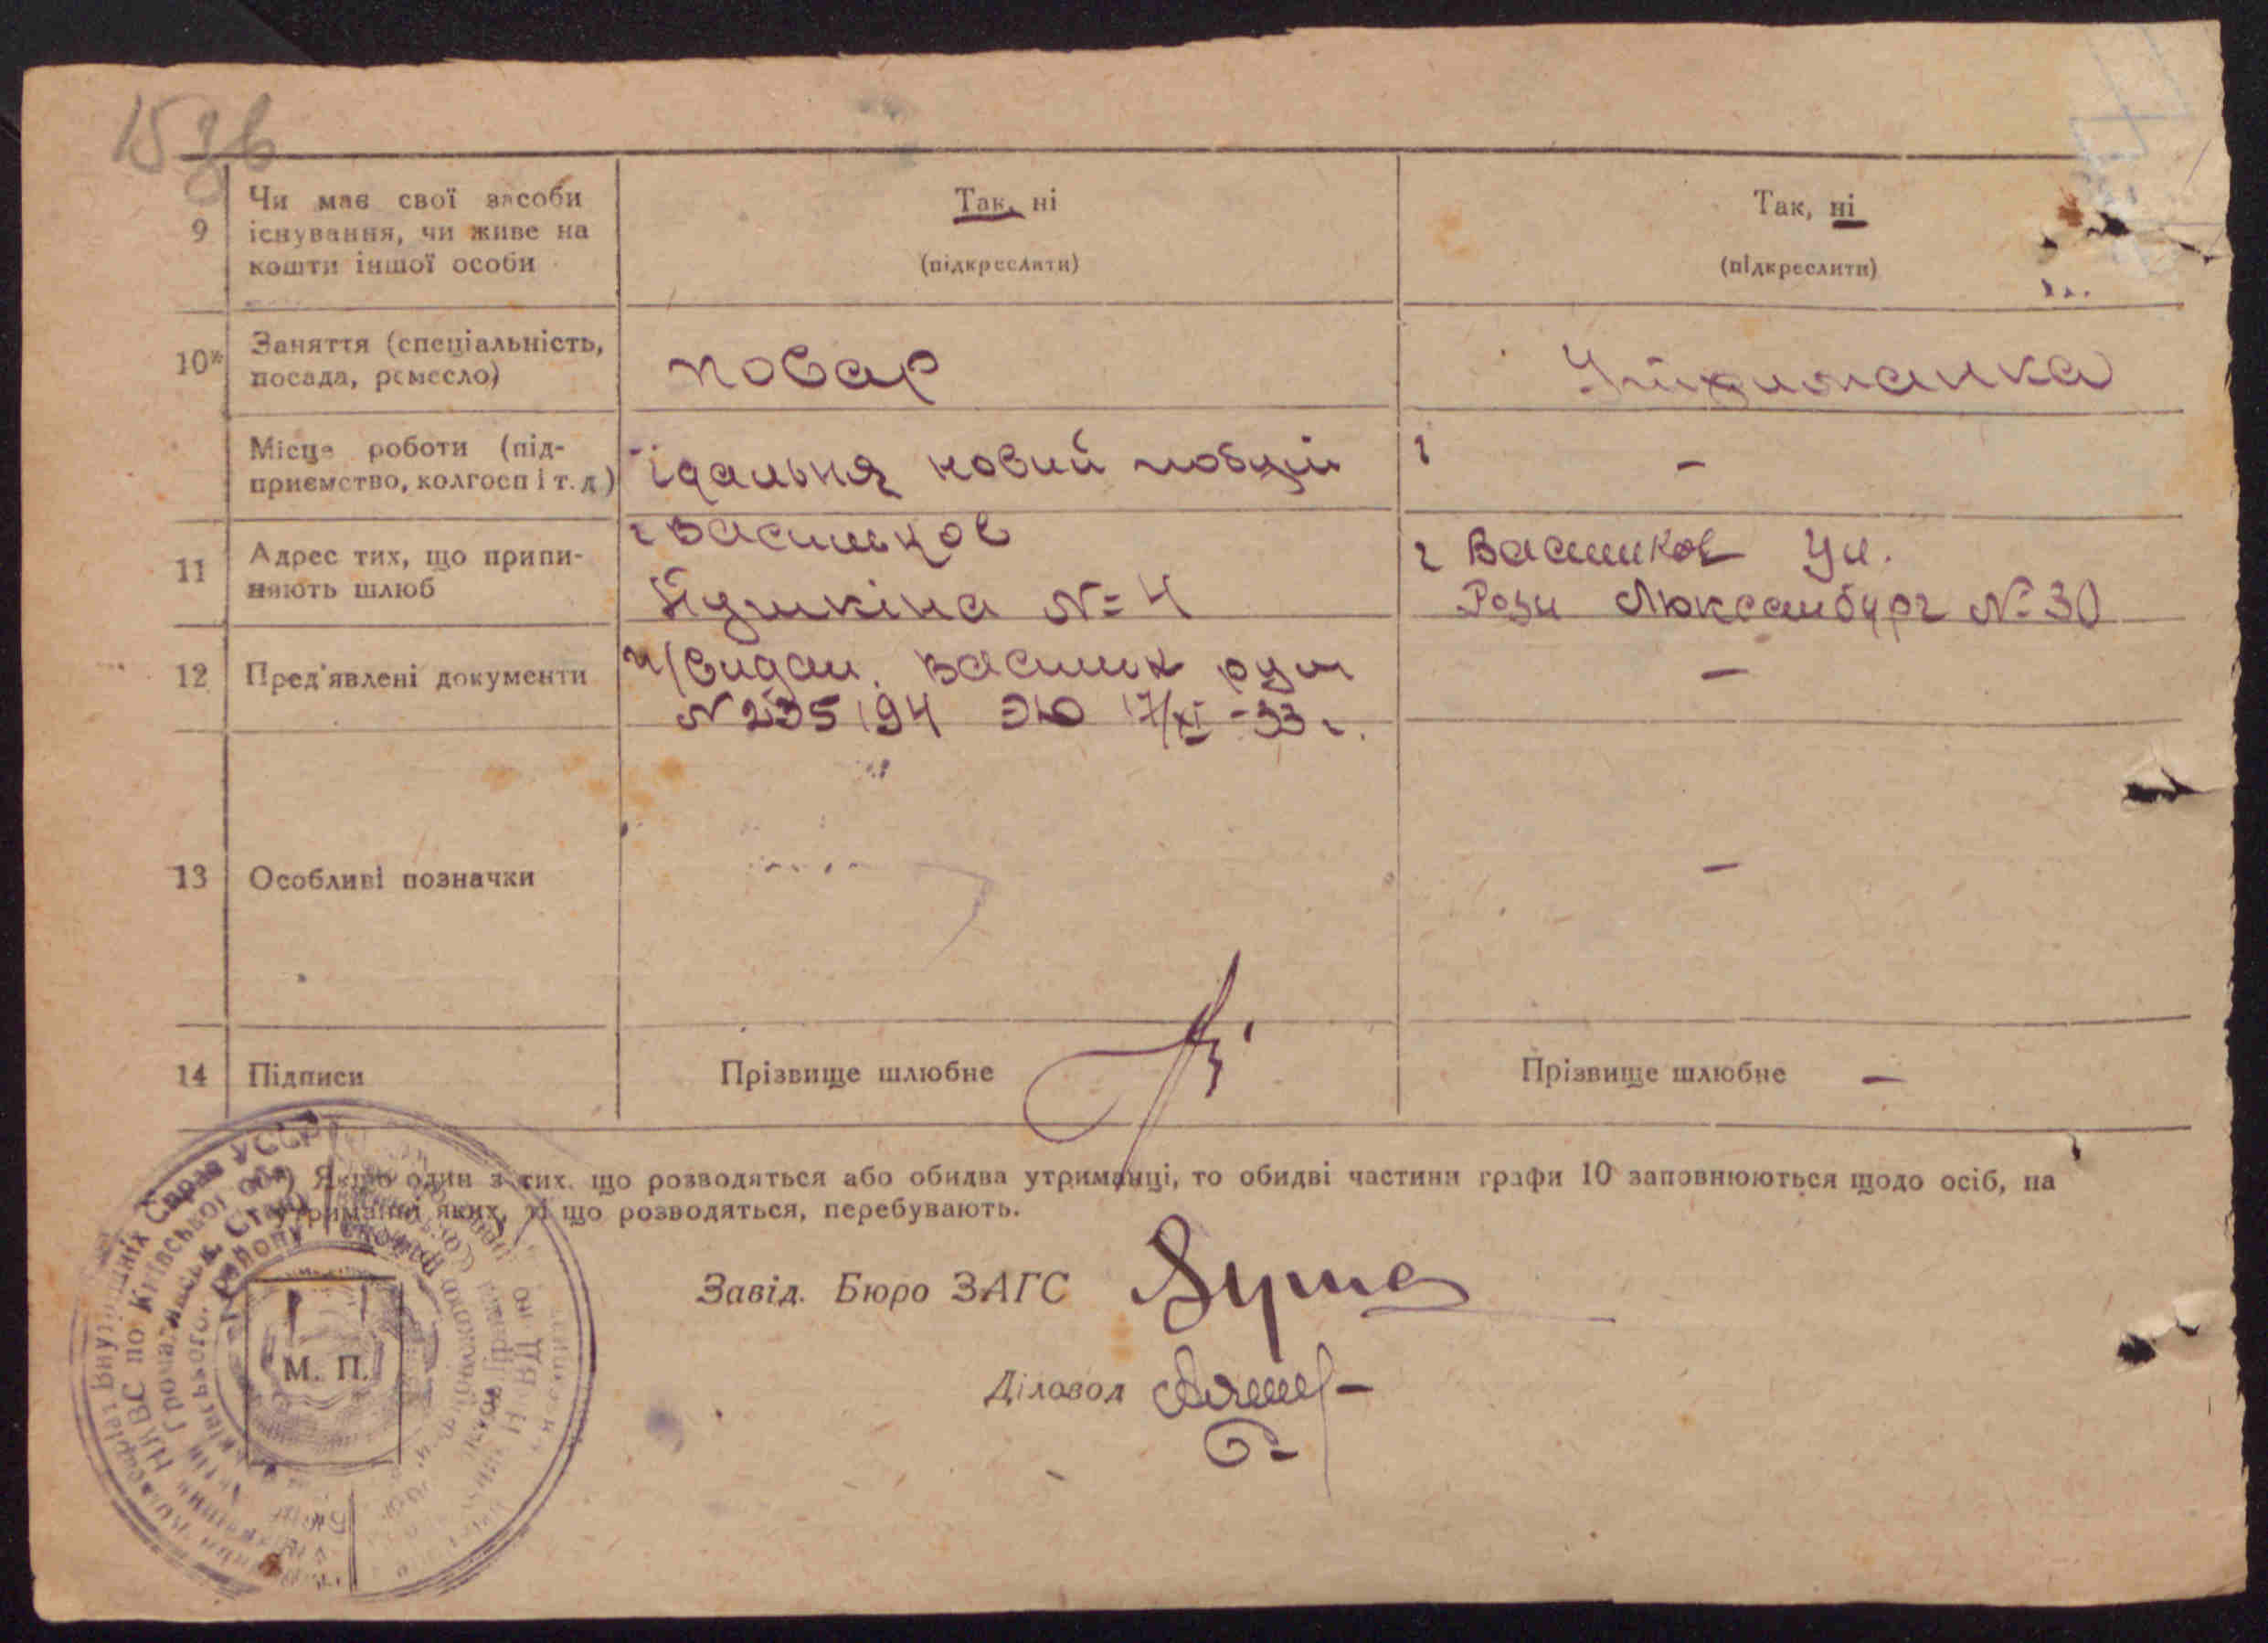 9 Чи має свої засоби
існування, чи живе на
кошти іншої особи
Так, ні
(підкреслити)
Так, ні
(підкреслити)
10* Заняття (спеціальність,
посада, ремесло)
повар
Утриманка
Місце роботи (під-
приємство, колгосп і т. д.)
їдальня новий побут
-
11 Адрес тих, що припи-
няють шлюб
г Васильков
Пушкіна № 4
г Васильков Ул.
Рози Люксамбург № 30
12 Пред'явлені документи
видан. Васильк
N 235194 ЭЮ 17/XI -33 г.
-
13 Особливі позначки
-
14 Підписи
Прізвище шлюбне
Прізвище шлюбне -
*) Якщо один з тих, що розводяться або обидва утриманці, то обидві частини графи 10 заповнюються щодо осіб, на
утриманні яких, ті що розводяться, перебувають.
Завід. Бюро ЗАГС
Діловод
М. П.
Внутрішніх Справ УССР
НКВС по Київської обл.